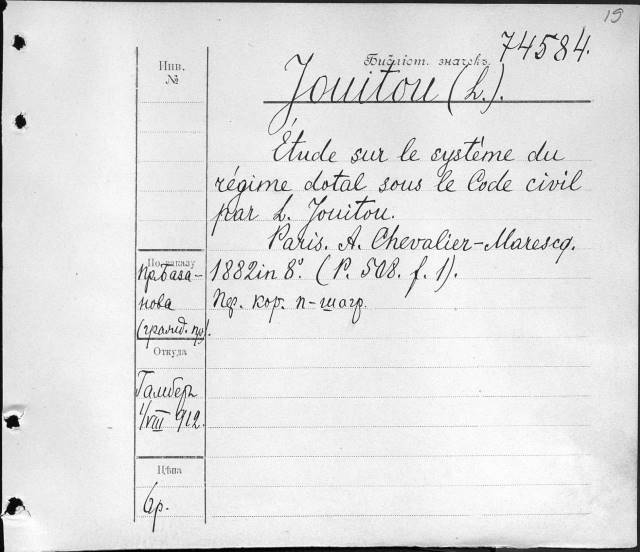 19
74584.
Библіот. значекъ
Инв.
№
Jouitou (L.).
Étude sur le système du
régime dotal sous le Code civil
par L. Jouitou.
Paris. A. Chevalier-Marescq.
1882 in 8°. (P. 508. f. 1).
кор. п-шагр.
По заказу
нова
Откуда
Гамберъ
1/VIII 912.
Цѣна
6р.